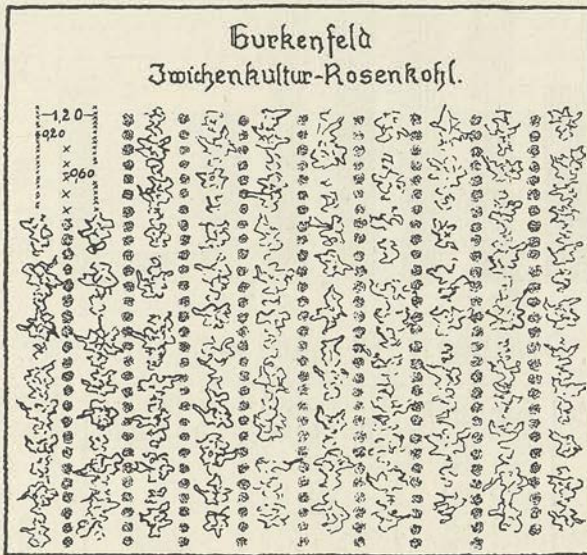 Gurkenfeld
Zwichenkultur-Rosenkohl.
1,20
0,20
0,60